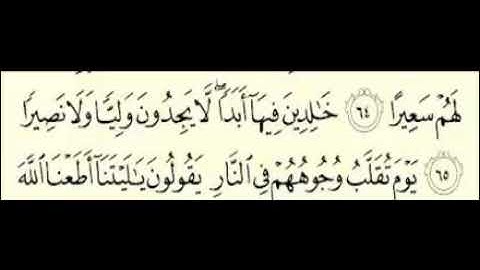 لَهُمْ سَعِيرًا ٦٤ خَٰلِدِينَ فِيهَآ أَبَدًا ۖ لَّا يَجِدُونَ وَلِيًّا وَلَا نَصِيرًا
٦٥ يَوْمَ تُقَلَّبُ وُجُوهُهُمْ فِى ٱلنَّارِ يَقُولُونَ يَٰلَيْتَنَآ أَطَعْنَا ٱللَّهَ